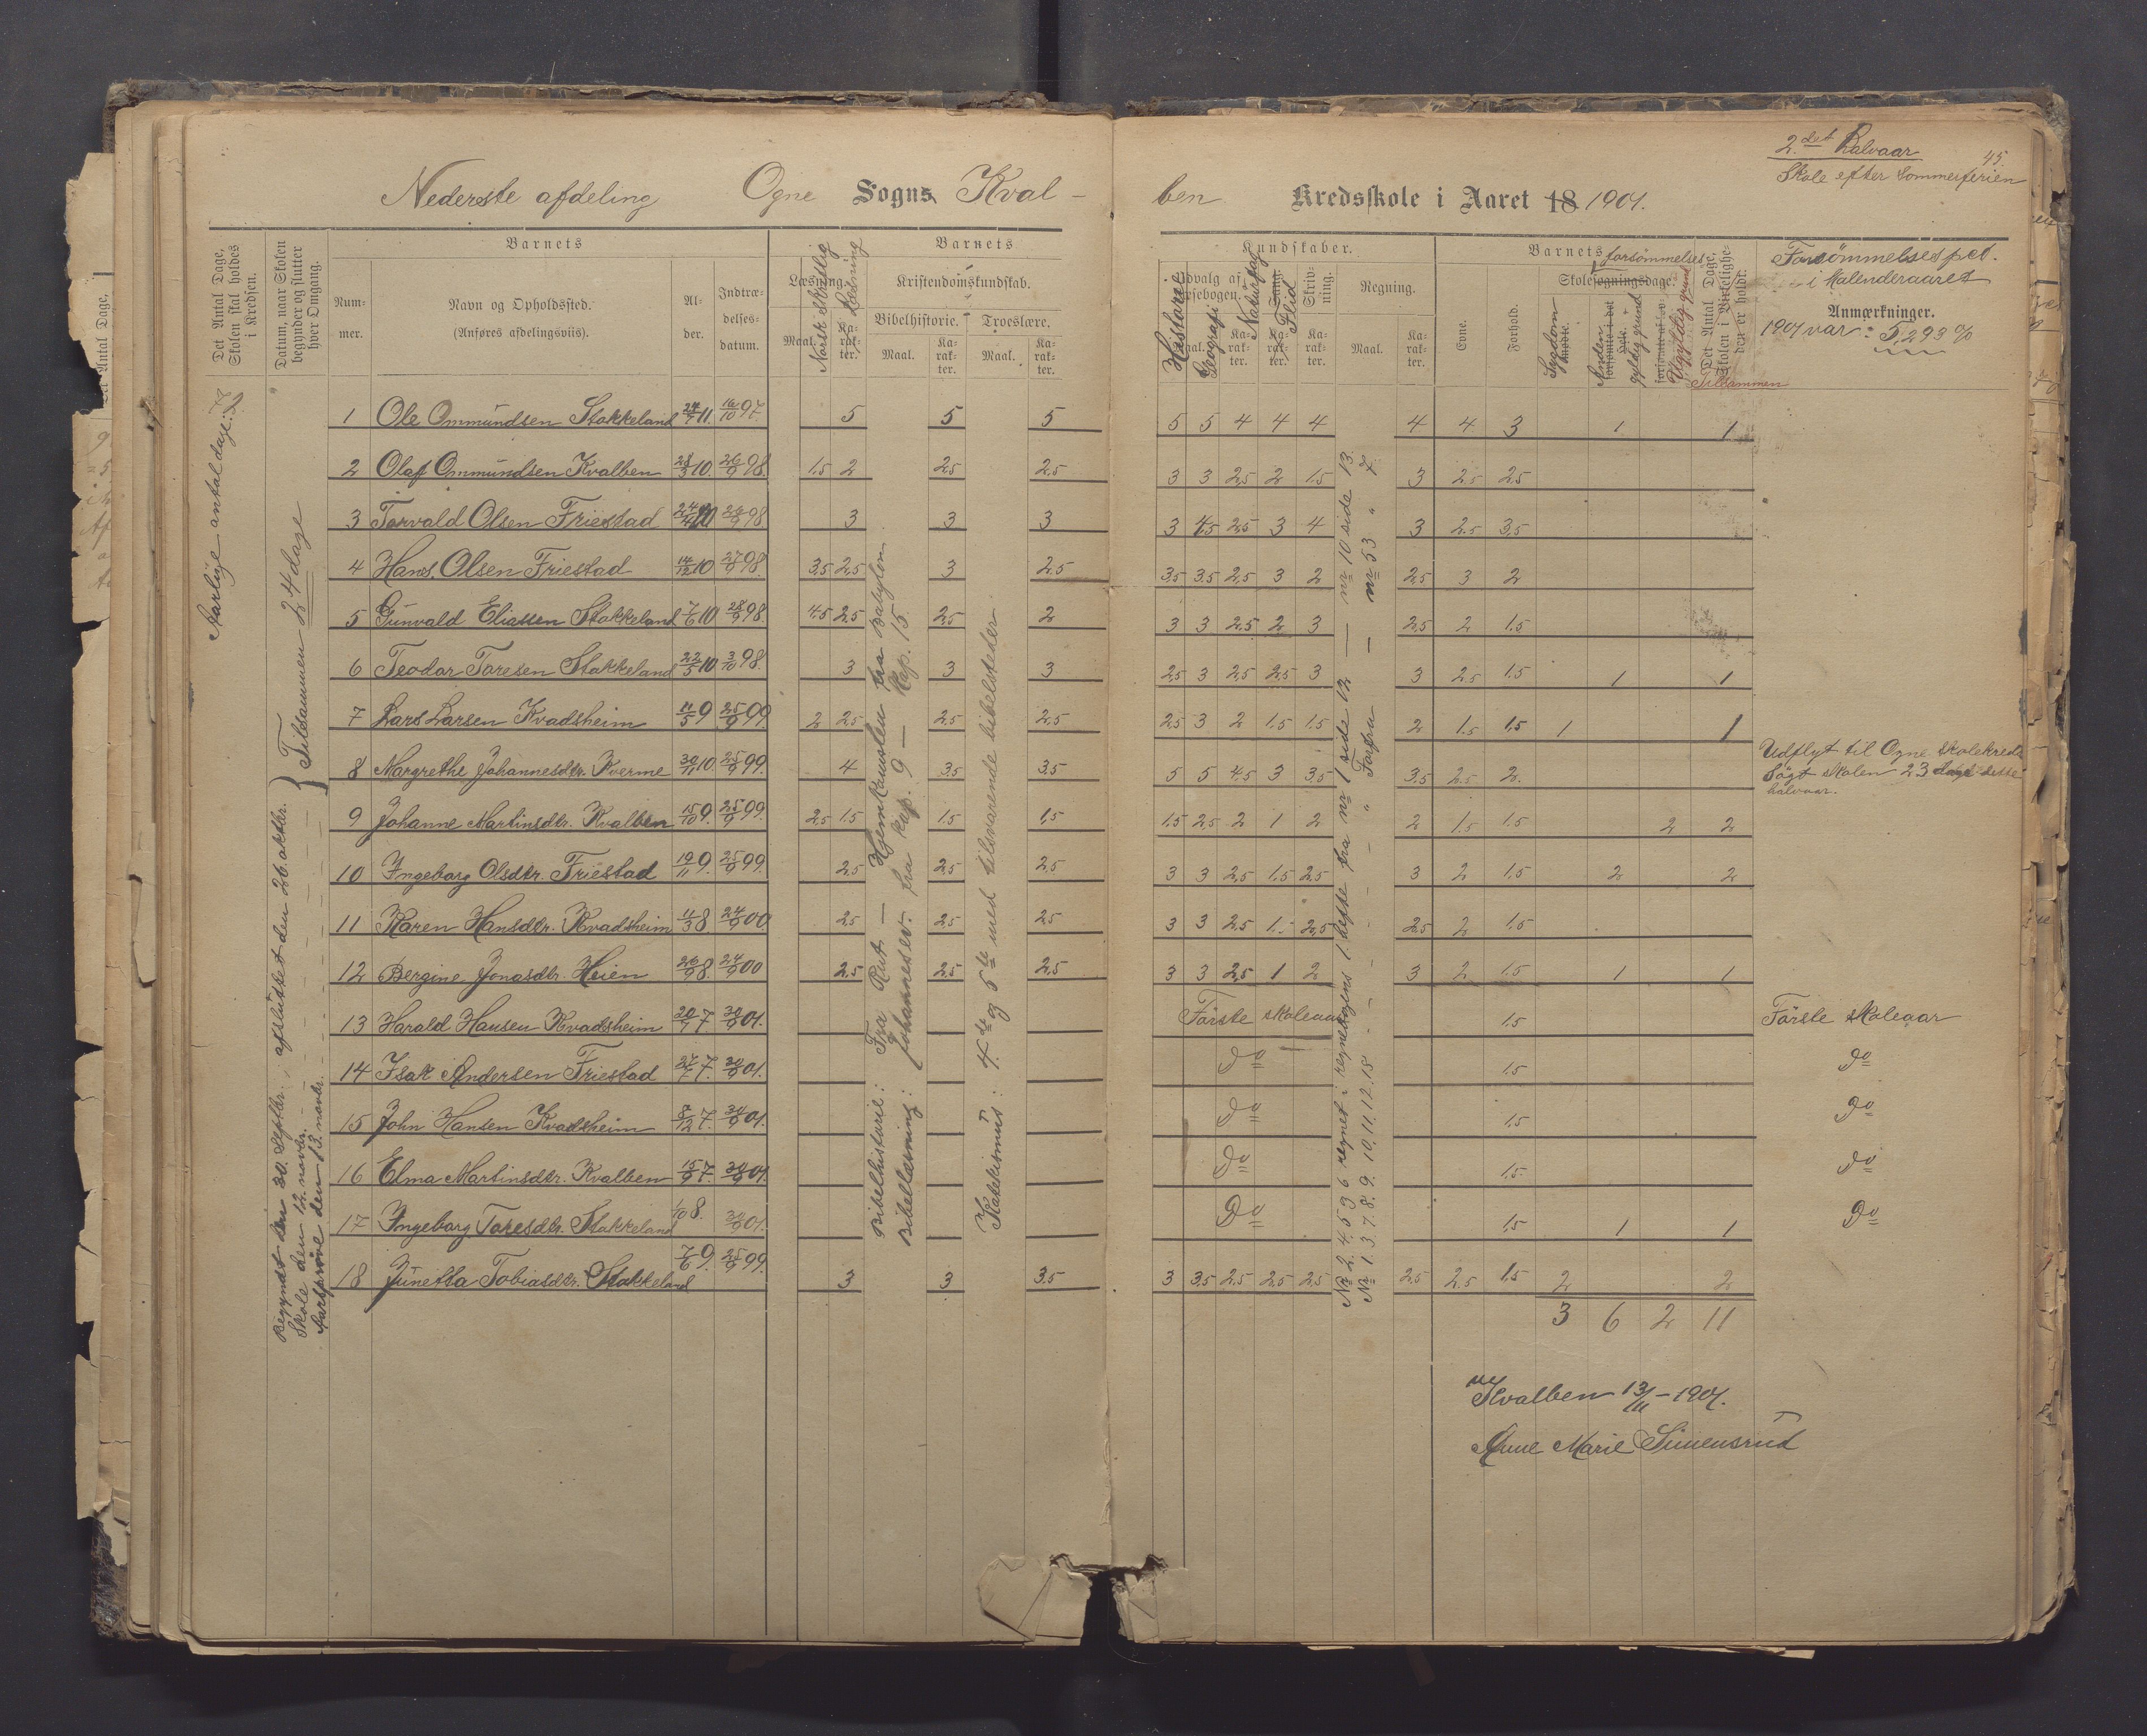 2det Halvaar
45.
Skole efter Sommerferien
Nederste afdeling Ogne Sogns Kval-
ben Kredsskole i Aaret 18 1901.
Det Antal Dage, Skolen skal holdes i Kredsen.
Datum, naar Skolen begynder og slutter hver Omgang.
Barnets
Num-mer.
Navn og Opholdssted.
(Anføres afdelingsviis).
Al-der.
Indtræ-delses-datum.
Barnets
Læsning.
Maal.
Ka-rak-ter.
Norsk skriftlig
Læsning
Kristendomskundskab.
Bibelhistorie.
Troeslære.
Maal.
Ka-rak-ter.
Maal.
Ka-rak-ter.
Kundskaber.
Udvalg af Læsebogen.
Historie
Geografi
Naturfag
Sang.
Flid
Skriv-ning.
Regning.
Maal.
Ka-rak-ter.
Barnets
Evne.
Forhold.
forsømmelser
Skolesøgningsdage.
Sygdom
Anden gyldig grund
Ugyldig grund
Det Antal Dage, Skolen i Virkelighe-den er holdt.
Tilsammen
Forsømmelsespct.
i Kalenderaaret
Anmærkninger.
1901 var: 5,293 %
1 Ole Ommundsen Stokkeland 24/7 11. 16/10 97. 5 5 5 5 5 4 4 4 4 4 3 1 1
2 Olaf Ommundsen Kvalben 28/3 10. 26/9 98 1.5 2 2.5 2.5 3 3 2,5 2 1.5 3 2.5 2.5
3 Torvald Olsen Friestad 24/4 26/9 98 3 3 3 3 4.5 2,5 3 4 3 2.5 3,5
4 Hans Olsen Friestad 14/12 10 27/9 98. 3,5 2,5 3 2.5 3,5 3.5 2,5 3 2 2,5 3 2
5 Gunvald Eliassen Stokkeland 7/6 10 28/9 98. 4.5 2.5 2,5 2 3 3 2.5 2 3 2,5 2 1.5
6 Teodor Toresen Stokkeland 22/5 10 3/10 98. 3 3 3 2,5 3 2,5 2,5 3 3 2.5 1.5 1 1
7 Lars Larsen Kvadsheim 11/5 9 25/9 99 2 2,5 2,5 2,5 2,5 3 2 1.5 1.5 2 1.5 1.5 1 1
8 Margrethe Johannesdtr. Kverme 30/11 10. 25/9 99. 4 3,5 3.5 5 5 4,5 3 3,5 3,5 2.5 2. Udflyt til Ogne skolekreds
Søgt skolen 23 dage dette
halvaar.
9 Johanne Martinsdtr. Kvalben 15/10 9. 25/9 99. 2,5 1.5 1.5 1,5 1.5 2,5 2 1 2 2 1.5 1.5 2 2
10 Ingeborg Olsdtr. Friestad 19/11 9. 25/9 99. 2,5 2,5 2,5 3 3 2,5 1.5 2,5 3 2 1.5 2 2
11 Karen Hansdtr. Kvadsheim 11/3 8. 24/9 00 2,5 2,5 2.5 3 3 2,5 1.- 2,5 2,5 2 1.5
12 Bergine Jonasdtr. Heien 26/9 8. 24/9 00 2,5 2,5 2,5 3 3 2,5 1 2 3 2 1.5 1 1
13 Harald Hansen Kvadsheim 20/7 7 30/9 01. Første skoleaar 1.5 Første skoleaar
14 Isak Andersen Friestad 27/7 7. 30/9 01. Do 1.5 Do
15 John Hansen Kvadsheim 8/12 7. 30/9 01. Do 1.5 Do
16 Elma Martinsdtr. Kvalben 15/9 7. 30/9 01. Do 1.5 Do
17 Ingeborg Toresdtr. Stokkeland 1/10 8. 30/9 01. Do 1.5 1 1 Do
18 Junetta Tobiasdtr. Stokkeland 7/6 9. 25/9 99. 3 3 3.5 3 3,5 2,5 2,5 2,5 2,5 2.5 1.5 2 2
3 6 2 11
Kvalben 13/11 - 1901.
Anne Marie Simensrud
Aarlige antal dage: 72
Begyndt den 30. septbr.; afsluttet den 26 oktbr.
Skole den 12. novbr.
Aarsprøve den 13. novbr.
Tilsammen 24 dage
Bibelhistorie: Fra Rut — Hjemkomsten fra Babylon.
Bibellæsning: Johannesev. fra kap. 9 — Kap. 15
Katekismus: 4.de og 5te med tilsvarende bibelsteder.
No 2. 4. 5 og 6 regnet i regnebogens 1. hefte fra nr 1 side 12 — nr 10 side 13.
No 1. 3. 7. 8. 9. 10. 11. 12. 18 - - - - " Forfra — nr 53 " 7.